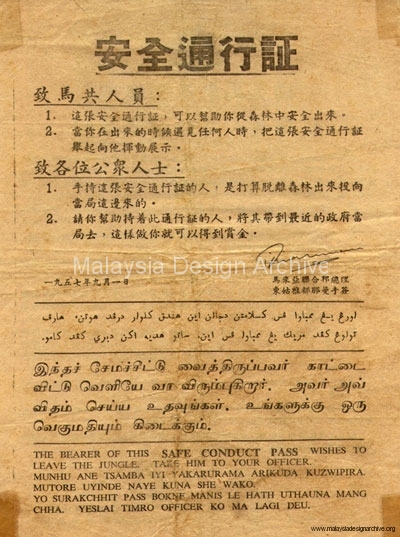 安全通行証
致馬共人員：
1. 這張安全通行証，可以幫助你從森林中安全出來。
2. 當你在出來的時候遇見任何人時，把這張安全通行証
舉起向他揮動展示。
致各位公眾人士：
1. 手持這張安全通行証的人，是打算脫離森林出來投向
當局這邊來的。
2. 請你幫助持着此通行証的人，將其帶到最近的政府當
局去，這樣做你就可以得到賞金。
Malaysia Design Archive
馬來亞聯合邦總理
一九五七年九月一日
東姑雅都拉曼手簽
اورڠ يڠ ممباوا ڤس كسلامتن دجالن اين هندق كلوار درڤد هوتن. هارڤ
تولوڠ كڤد مريك يڠ ممباوا ڤس اين. ساتو هديه اكن دبري كڤد كامو.
இந்தச் சேமச்சிட்டு வைத்திருப்பவர் காட்டை
விட்டு வெளியே வர விரும்புகிறார். அவர் அவ்
விதம் செய்ய உதவுங்கள். உங்களுக்கு ஒரு
வெகுமதியும் கிடைக்கும்.
THE BEARER OF THIS SAFE CONDUCT PASS WISHES TO
LEAVE THE JUNGLE. TAKE HIM TO YOUR OFFICER.
MUNHU ANE TSAMBA IYI YAKARURAMA ARIKUDA KUZWIPIRA.
MUTORE UYINDE NAYE KUNA SHE WAKO.
YO SURAKCHHIT PASS BOKNE MANIS LE HATH UTHAUNA MANG
CHHA. YESLAI TIMRO OFFICER KO MA LAGI DEU.
www.malaysiadesignarchive.org